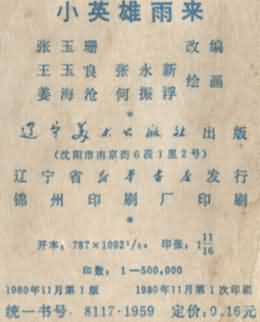 小英雄雨来
张玉珊 改编
王玉良 张永新
姜海沧 何振浮 绘画
辽宁美术出版社出版
(沈阳市南京街6段1里2号)
辽宁省新华书店发行
锦州印刷厂印刷
开本:787×1092 1/64 印张:1 11/16
印数:1—500,000
1980年11月第1版 1980年11月第1次印刷
统一书号:8117·1959 定价:0.16元